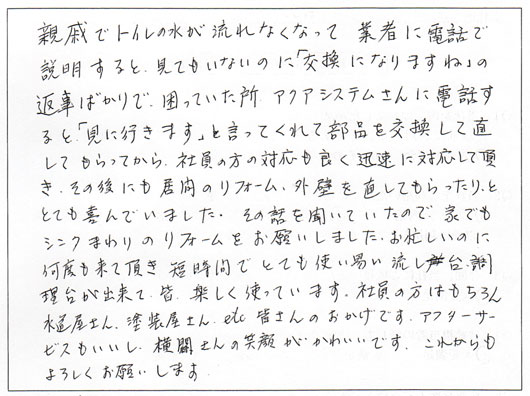 親戚でトイレの水が流れなくなって 業者に電話で
説明すると、見てもいないのに「交換になりますね」の
返事ばかりで、困っていた所 アクアシステムさんに電話す
ると、「見に行きます」と言ってくれて部品を交換して直
してもらってから、社員の方の対応も良く迅速に対応して頂
き、その後にも居間のリフォーム、外壁を直してもらったりと
とても喜んでいました。その話を聞いていたので、家でも
シンクまわりのリフォームをお願いしました。お忙しいのに
何度も来て頂き 短時間でとても使い易い流し台調
理台が出来て、皆、楽しく使っています。社員の方はもちろん
水道屋さん、塗装屋さん、etc 皆さんのおかげです。アフターサー
ビスもいいし、横関さんの笑顔がかわいいです。これからも
よろしくお願いします。